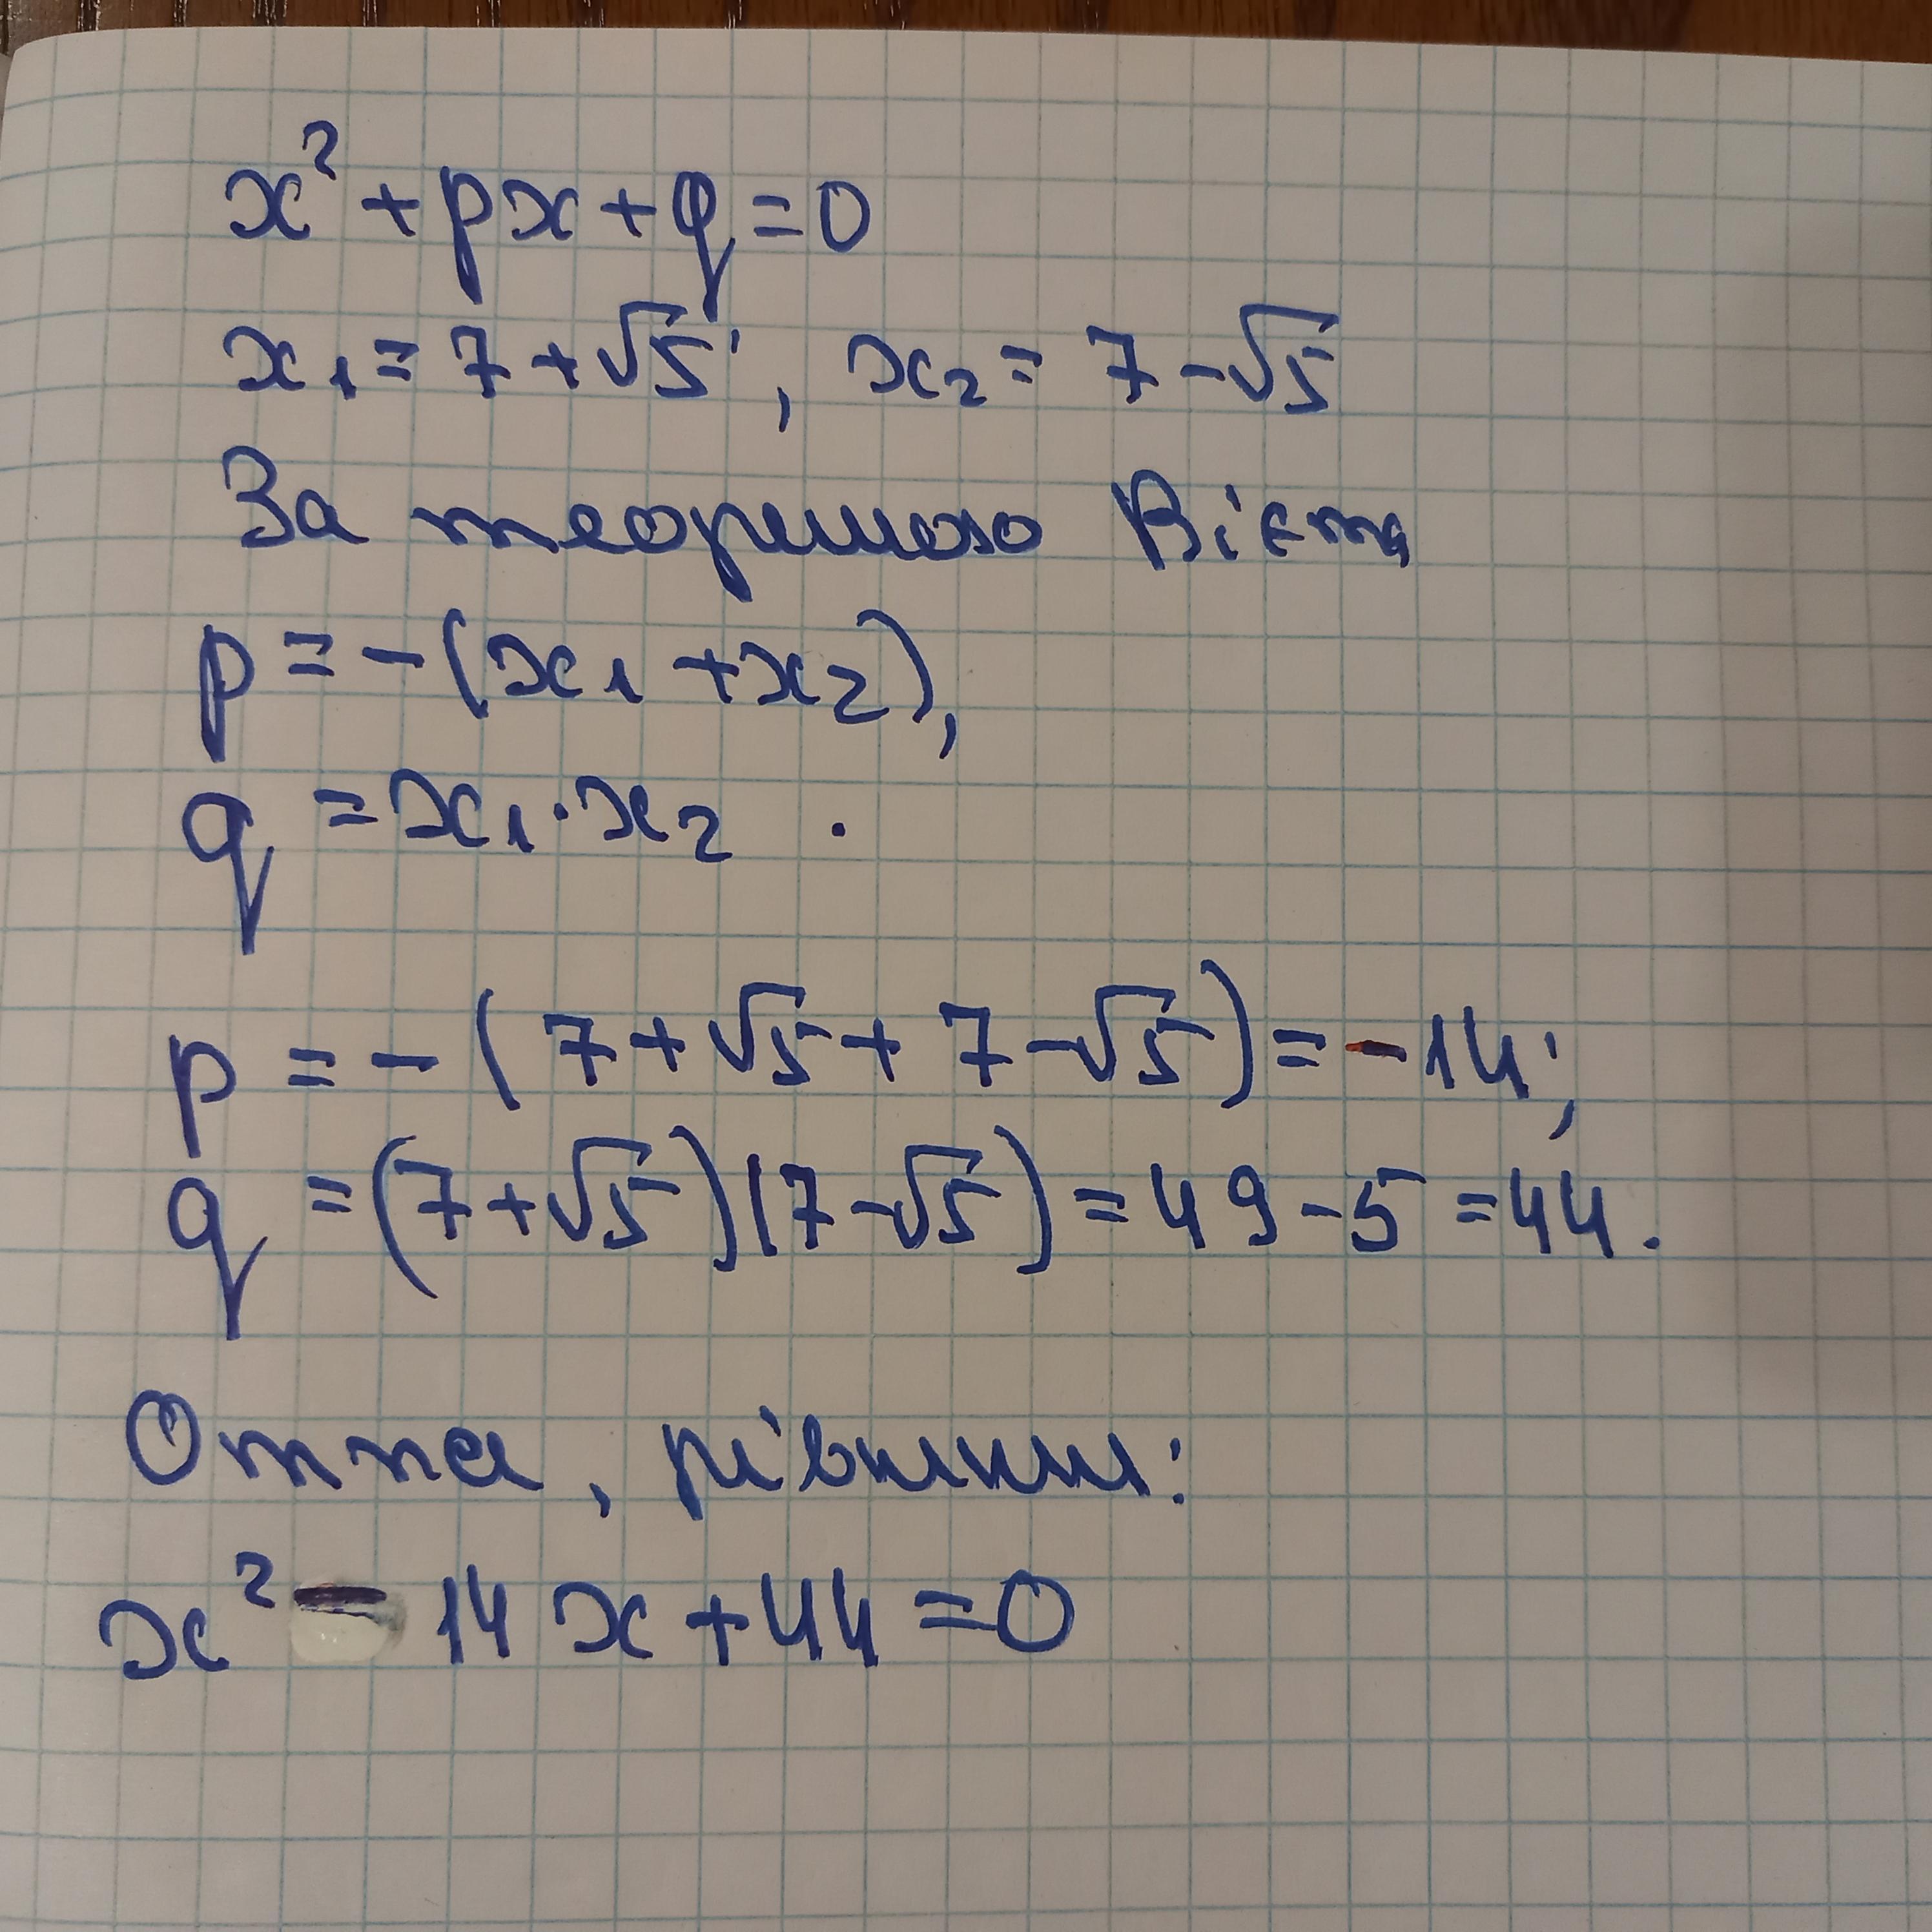 x² + px + q = 0
x₁ = 7 + √5, x₂ = 7 - √5
За теоремою Вієта
p = -(x₁ + x₂),
q = x₁ · x₂ .
p = - (7 + √5 + 7 - √5) = -14;
q = (7 + √5)(7 - √5) = 49 - 5 = 44.
Отже, рівняння:
x² - 14x + 44 = 0